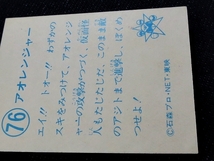 76 アオレンジャー
エイ!! トオー!! わずかの
スキをみつけて、アオレンジ
ャーの攻撃がつづく。仮面怪
人もたじたじだ。このまま敵
のアジトまで進撃し、ぼくめ
つせよ!
©石森プロ・NET・東映